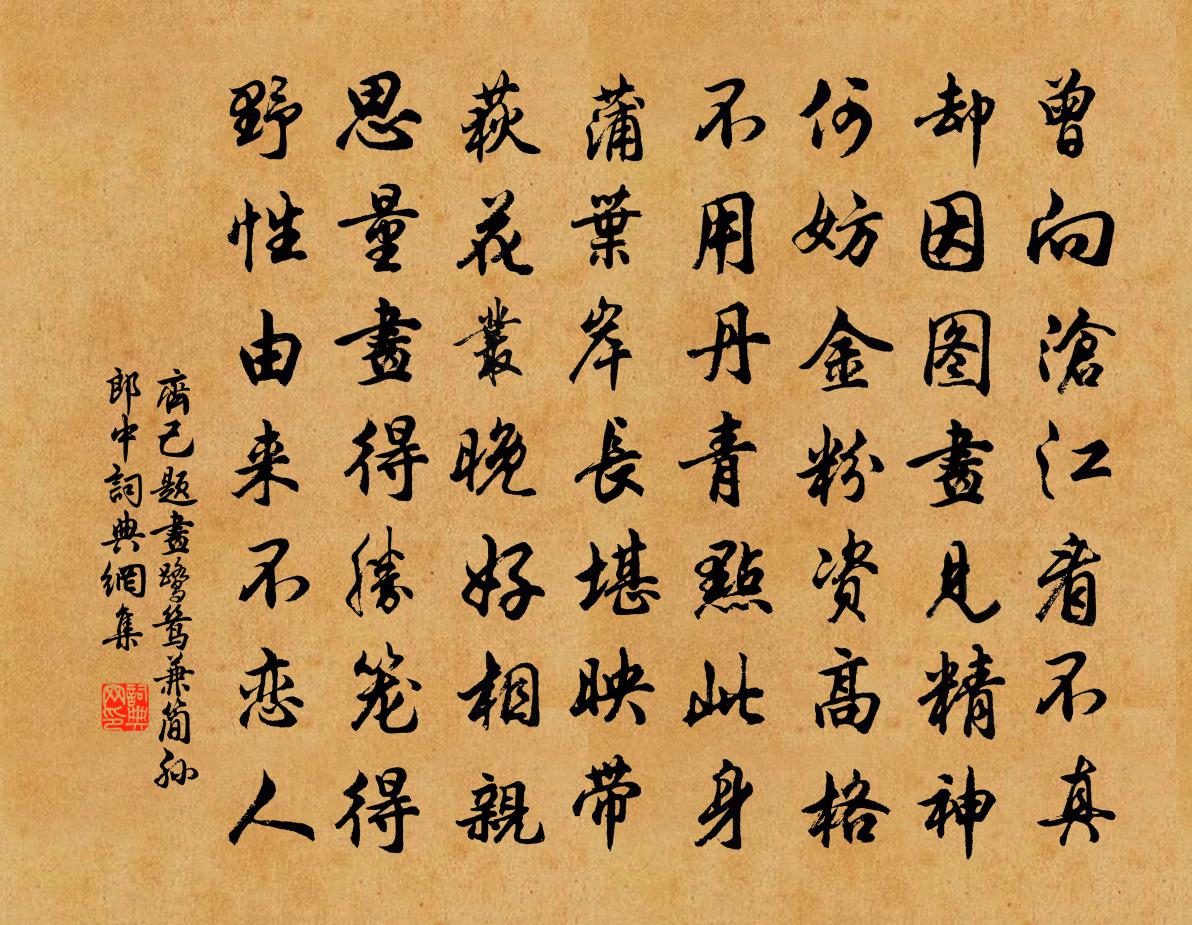 曾向滄江看不真
却因图畫見精神
何妨金粉资高格
不用丹青點此身
蒲葉岸長堪映带
荻花叢晚好相親
思量畫得勝笼得
野性由来不恋人
齊己题畫鹭鸶兼简孙
郎中詞典網集
詞典网印